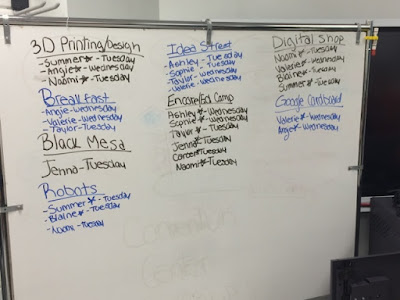 3D Printing/Design
- Summer* - Tuesday
- Angie* - Wednesday
- Naomi* - Tuesday
Breakfast
- Angie - Wednesday
- Valerie - Wednesday
- Taylor - Tuesday
Black Mesa
Jenna - Tuesday
Robots
- Summer* - Tuesday
- Blaine* - Tuesday
- Naomi - Tuesday
Idea Street
- Ashley - Tuesday
- Sophie - Tuesday
- Taylor - Wednesday
- Valerie - Wednesday
Encore/Ed Camp
Ashley* - Wednesday
Sophie* - Wednesday
Taylor* - Tuesday
Jenna* Tuesday
* Tuesday
Naomi* Tuesday
Digital Shop
Naomi* - Tuesday
Valerie* - Wednesday
Blaine* - Tuesday
Summer* - Tuesday
Google Cardboard
Valerie* - Wednesday
Angie* - Wednesday
Convention
Center